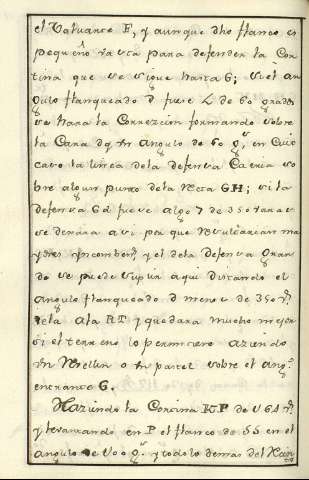 el Baluarte F, y aunque dho flanco es
pequeño basta para defender la Cor
tina que se sigue hasta G; si el an
gulo flanqueado d fuere L de 60 grados
se hara la Correzcion formando sobre
la Cara dq un angulo de 60 g.s en cuio
caso la linea dela defensa Caeria so
bre algun punto dela Recta GH; si la
defensa Gd fuese algo 7 de 350 varas
se dexara asi, pa que Resultarian ma
yores Yncombenr.s y el dela defensa gran
de se puede suplir aqui distando el
angulo flanqueado d menos de 350 v.s
dela ala RT y quedara mucho mejor
si el terreno lo permitiere aziendo
un Rebellin o un parcel sobre el ang.o
entrante G.
Haziendo la Cortina KP de 64 v.s
y levantando en P el flanco de 55 en el
angulo de 100 g.s y todo lo demas del